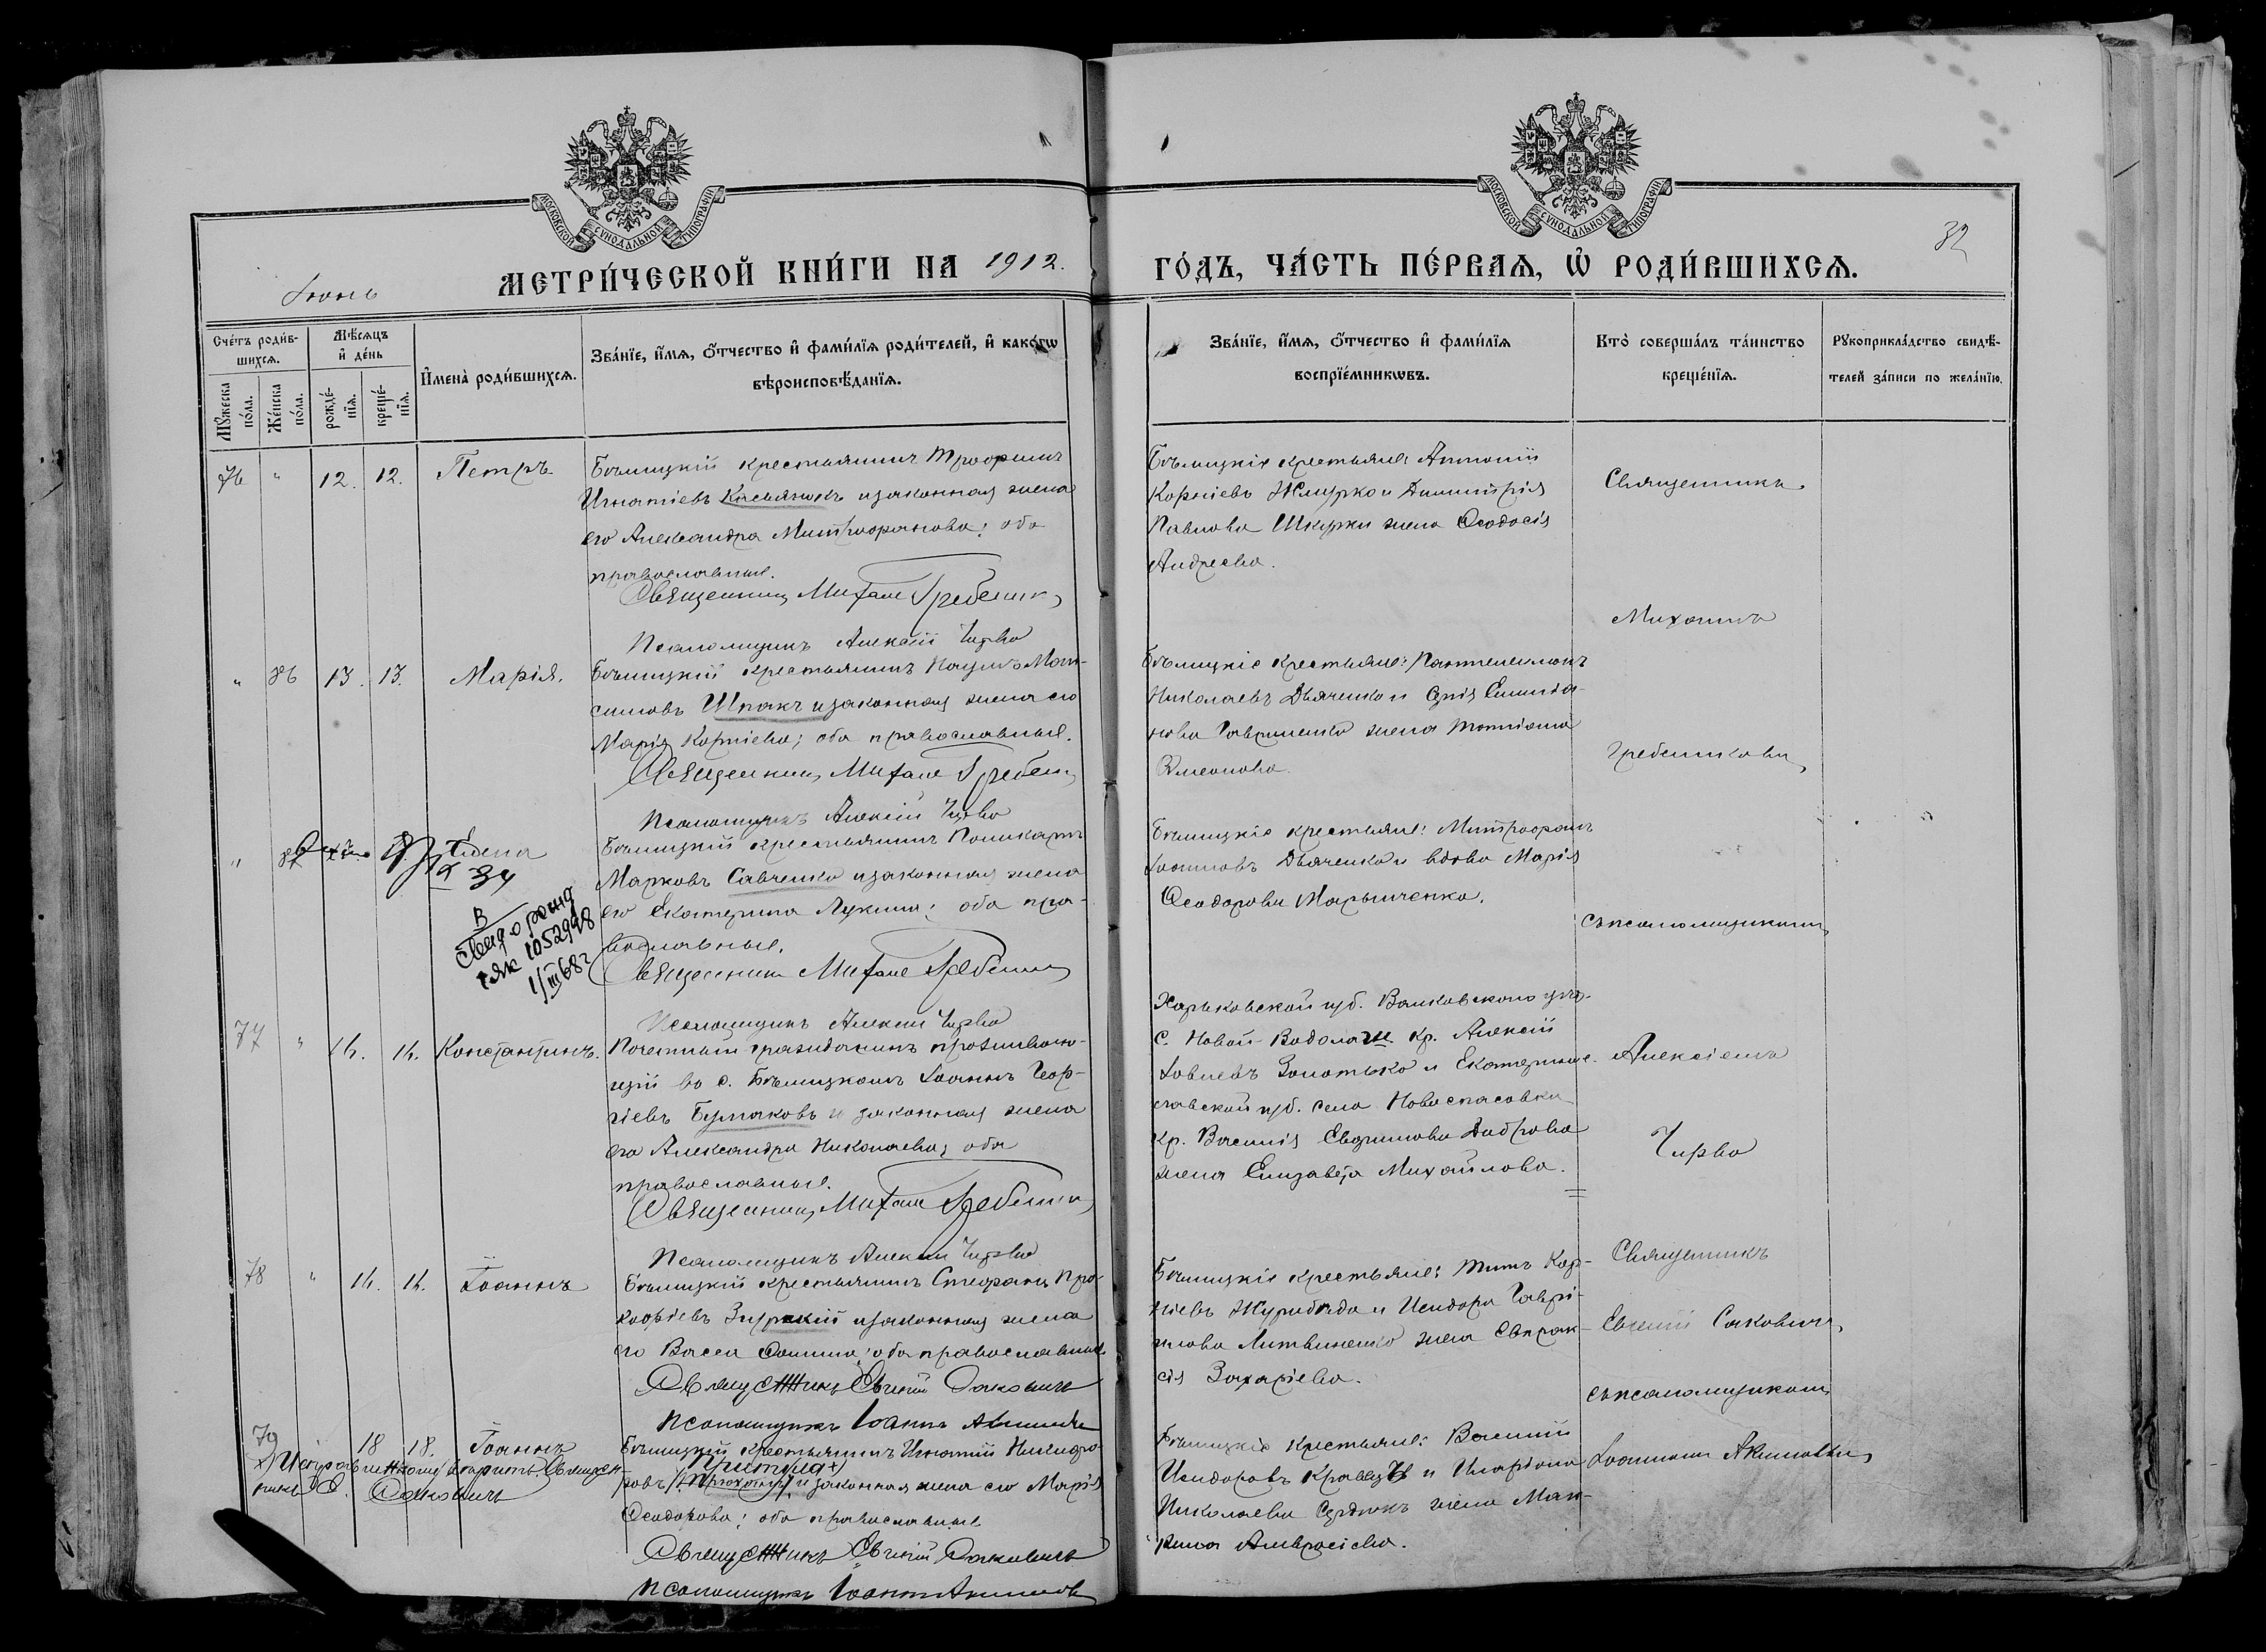 МОСКОВСКОЙ СѴНОДАЛЬНОЙ ТИПОГРАФІИ
МОСКОВСКОЙ СѴНОДАЛЬНОЙ ТИПОГРАФІИ
32
Іюнь
МЕТРИ́ЧЕСКОЙ КНИ́ГИ НА 1912.
ГО́ДЪ, ЧА́СТЬ ПЕ́РВАѦ, Ѡ҆ РОДИ́ВШИХСѦ.
Сче́тъ роди́в-
шихсѧ.
Мꙋ́жеска по́ла.
Же́нска по́ла.
Мѣ́сѧцъ
и҆ де́нь
рожде́-
нїѧ.
креще́-
нїѧ.
И҆мена̀ роди́вшихсѧ.
Зва́нїе, и҆́мѧ, ѻ҆́тчество и҆ фами́лїѧ роди́телей, и҆ како́гѡ
вѣроисповѣ́данїѧ.
Зва́нїе, и҆́мѧ, ѻ҆́тчество и҆ фами́лїѧ
воспрїе́мникѡвъ.
Кто̀ соверша́лъ та́инство
креще́нїѧ.
Рꙋкоприкла́дство свидѣ́-
телей за́писи по жела́нїю.
76 " 12. 12. Петръ.
Бѣлицкій крестьянинъ Трофимъ
Игнатіевъ Касьянокъ и законная жена
его Александра Митрофанова; оба
православные.
Священникъ Михаил Гребенник
Псаломщикъ Алексій Чирва
Бѣлицкіе крестьяне: Антоній
Корніевъ Жмурко и Димитрія
Павлова Шкурки жена Ѳеодосія
Андреева.
Священникъ
Михаилъ
" 86 13. 13. Марія.
Бѣлицкій крестьянинъ Наумъ Мак-
симовъ Шпакъ и законная жена его
Марія Корніева; оба православные.
Священник Михаил Гребенник
Псаломщикъ Алексій Чирва
Бѣлицкіе крестьяне: Пантелеимонъ
Николаевъ Дьяченко и
нова Гавриленко жена
Симеонова.
" 87
Елена
IX 34
В
свид о рожд
1052998
1/III 68 г
Бѣлицкій крестьянинъ Поликарпъ
Марковъ Савченко и законная жена
его Екатерина Лукина; оба пра-
вославные.
Священник Михаил Гребенник
Псаломщикъ Алексій Чирва
Бѣлицкіе крестьяне: Митрофанъ
Іоанновъ Дьяченко и вдова Марія
Ѳеодорова Марыченко.
съ псаломщикомъ
77 " 14. 14. Константинъ.
Почетный гражданинъ проживаю-
щій въ с. Бѣлицкомъ Іоаннъ Геор-
гіевъ Булаковъ и законная жена
его Александра Николаева; оба
православные.
Священник Михаил Гребенник
Псаломщикъ Алексій Чирва
Харьковской губ. Валковскаго уѣз.
с. Новой-Водолаги кр. Алексій
Іовлевъ Золотько и Екатерино-
славской губ. села Новоспасовки
кр. Василія Евдокимова Диброва
жена Елизавета Михайлова.
Алексіемъ
Чирва
78 " 14. 14. Іоаннъ
Бѣлицкій крестьянинъ Стефанъ Про-
кофіевъ и законная жена
его Васса Ѳомина; оба православные
Священникъ Евгеній Саковичъ
Псаломщикъ Іоаннъ Акимовъ
Бѣлицкіе крестьяне: Титъ Кор-
ніевъ Журибида и Исидора Гаврі-
илова Литвиненко жена Евпрак-
сія Захаріева.
Священникъ
Евгеній Саковичъ
съ псаломщикомъ
79 18 18. Іоаннъ
Исправленному вѣрить. Священ-
никъ Е. Саковичъ
Бѣлицкій крестьянинъ Игнатій Никифо-
Притула+)
ровъ и законная жена его Марія
Ѳеодорова; оба православные
Священникъ Евгеній Саковичъ
Псаломщикъ Іоаннъ Акимовъ
Бѣлицкіе крестьяне: Василій
Исидоровъ Кравецъ и Иларіона
Николаева Сердюкъ жена
Амвросіева.
Іоанномъ Акимовымъ